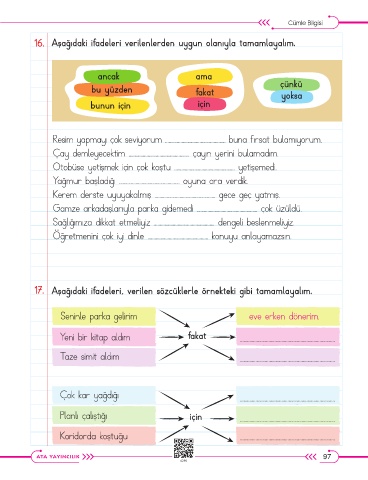 Cümle Bilgisi
16. Aşağıdaki ifadeleri verilenlerden uygun olanıyla tamamlayalım.
ancak
bu yüzden
bunun için
ama
fakat
için
çünkü
yoksa
Resim yapmayı çok seviyorum ........ buna fırsat bulamıyorum.
Çay demleyecektim ........ çayın yerini bulamadım.
Otobüse yetişmek için çok koştu ........ yetişemedi.
Yağmur başladığı ........ oyuna ara verdik.
Kerem derste uyuyakalmış ........ gece geç yatmış.
Gamze arkadaşlarıyla parka gidemedi ........ çok üzüldü.
Sağlığımıza dikkat etmeliyiz ........ dengeli beslenmeliyiz.
Öğretmenini çok iyi dinle ........ konuyu anlayamazsın.
17. Aşağıdaki ifadeleri, verilen sözcüklerle örnekteki gibi tamamlayalım.
Seninle parka gelirim
Yeni bir kitap aldım
Taze simit aldım
fakat
eve erken dönerim.
Çok kar yağdığı
Planlı çalıştığı
Koridorda koştuğu
için
ATA YAYINCILIK
97